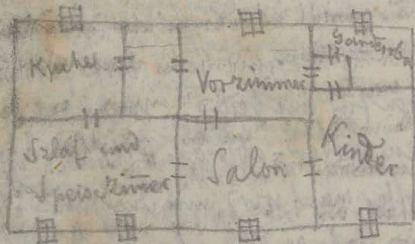 Küche
Vorzimmer
Garderobe
Schlaf und
Speisezimmer
Salon
Kinder